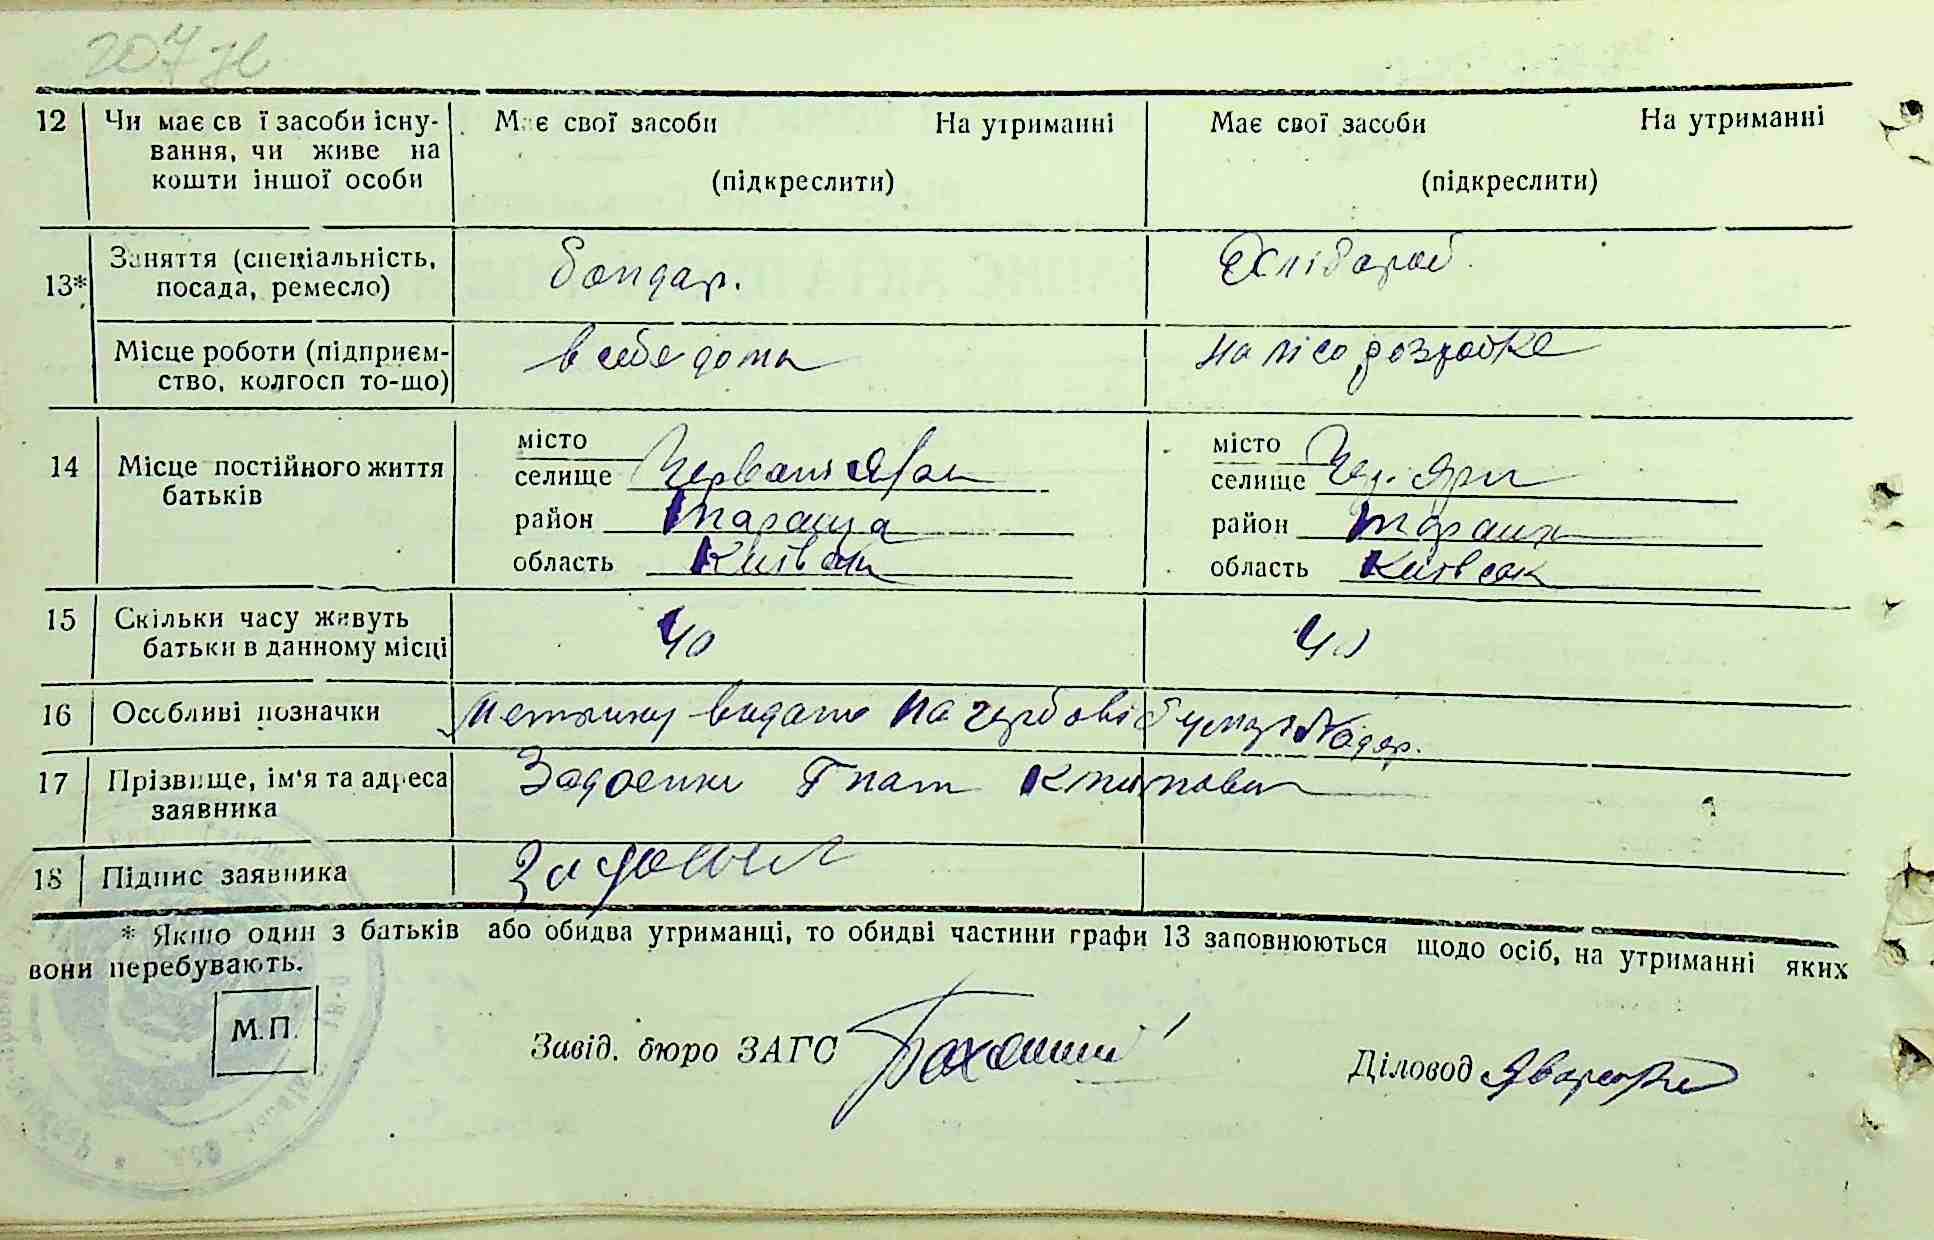 207
12 Чи має св ї засоби існу- Має свої засоби На утриманні Має свої засоби На утриманні
вання, чи живе на
кошти іншої особи (підкреслити) (підкреслити)
13* Заняття (спеціальність, бондар. Хлібороб.
посада, ремесло)
Місце роботи (підприєм- в себе дома на лісо розробке
ство, колгосп то-що)
місто місто
14 Місце постійного життя селище Червоні Яри селище Чер. Яри
батьків
район Тараща район Тараща
область Київськ область Київськ
15 Скільки часу живуть 40 40
батьки в данному місці
16 Особливі позначки Метрику видано на
17 Прізвище, ім'я та адреса Задоенко Гнат
заявника
18 Підпис заявника
* Якшо один з батьків або обидва утриманці, то обидві частини графи 13 заповнюються щодо осіб, на утриманні яких
вони перебувають.
М.П.
Завід. бюро ЗАГС
Діловод